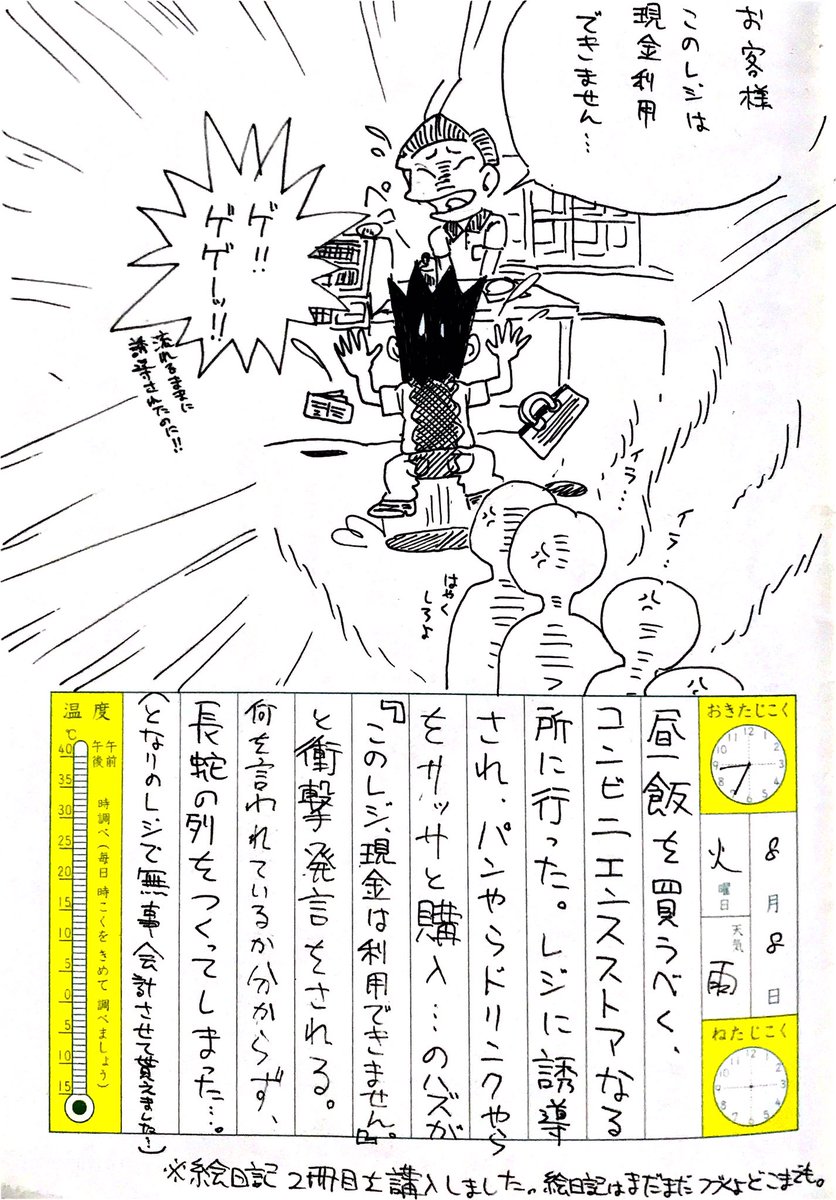 お客様
このレジは
現金利用
できません…
ゲ!!
ゲゲーッ!!
流れるままに
誘導されたのに!!
イラ…
イラ…
はやく
しろよ
おきたじこく
8月8日
火曜日
天気 雨
ねたじこく
昼飯を買うべく、
コンビニエンスストアなる
所に行った。レジに誘導
され、パンやらドリンクやら
をササッと購入…のハズが
『このレジ、現金は利用できません。』
と衝撃発言をされる。
何を言われているか分からず、
長蛇の列をつくってしまった…。
(となりのレジで無事会計させて貰えました!)
温度
℃
午前
午後
時調べ(毎日時こくをきめて調べましょう)
40
35
30
25
20
15
10
5
0
5
10
15
※絵日記2冊目を購入しました。絵日記はまだまだつづくよどこまでも。